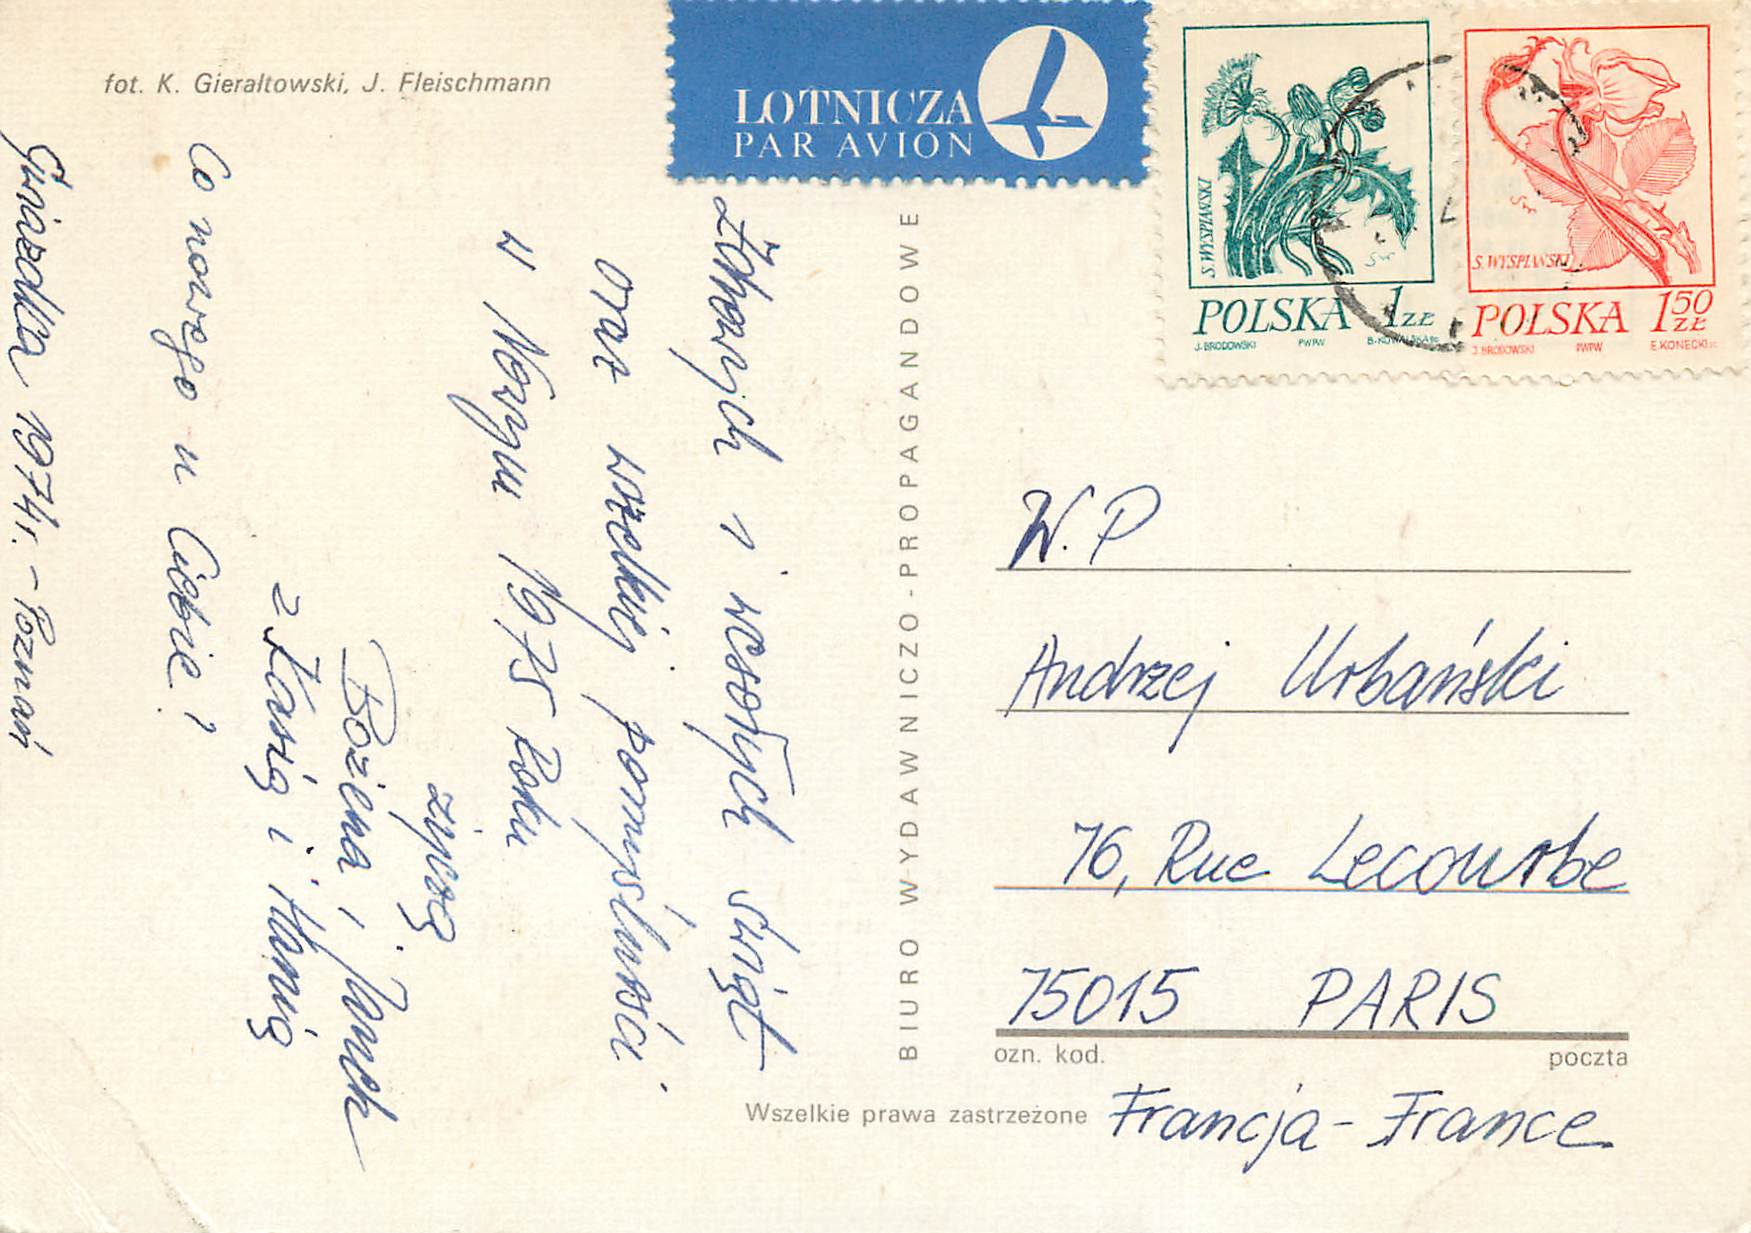 fot. K. Gierałtowski, J. Fleischmann
LOTNICZA
PAR AVION
S. WYSPIAŃSKI
POLSKA 1 ZŁ
J. BRODOWSKI PWPW B. KOWALSKA sc.
S. WYSPIAŃSKI
POLSKA 150 ZŁ
J. BRODOWSKI PWPW E. KONECKI sc.
Zdrowych i wesołych świąt
oraz wszelkiej pomyślności
w Nowym 1975 Roku
życzą
Bożena i Janek
z Kasią i Hanią
Co nowego u Ciebie?
Gwiazdka 1974r. - Poznań
BIURO WYDAWNICZO-PROPAGANDOWE
W.P
Andrzej Urbański
76, Rue Lecourbe
75015 PARIS
ozn. kod. poczta
Wszelkie prawa zastrzeżone
Francja - France